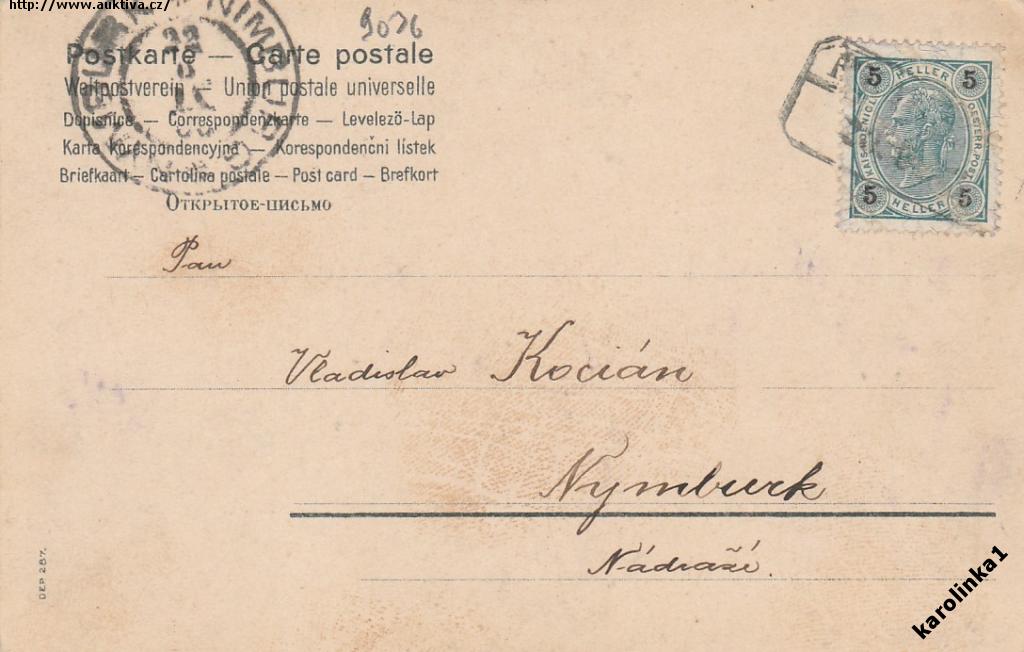 http://www.auktiva.cz/
9076
Postkarte — Carte postale
Weltpostverein — Union postale universelle
Dopisnice — Correspondenzkarte — Levelező-Lap
Karta korespondencyjna — Korespondenční lístek
Briefkaart — Cartolina postale — Post card — Brefkort
Открытое-письмо
NIMBURG
5 HELLER 5
KAIS. KOENIGL. OESTERR. POST
5 HELLER 5
Pan
Vladislav Kocián
Nymburk
Nádraží.
DEP. 287.
karolinka1